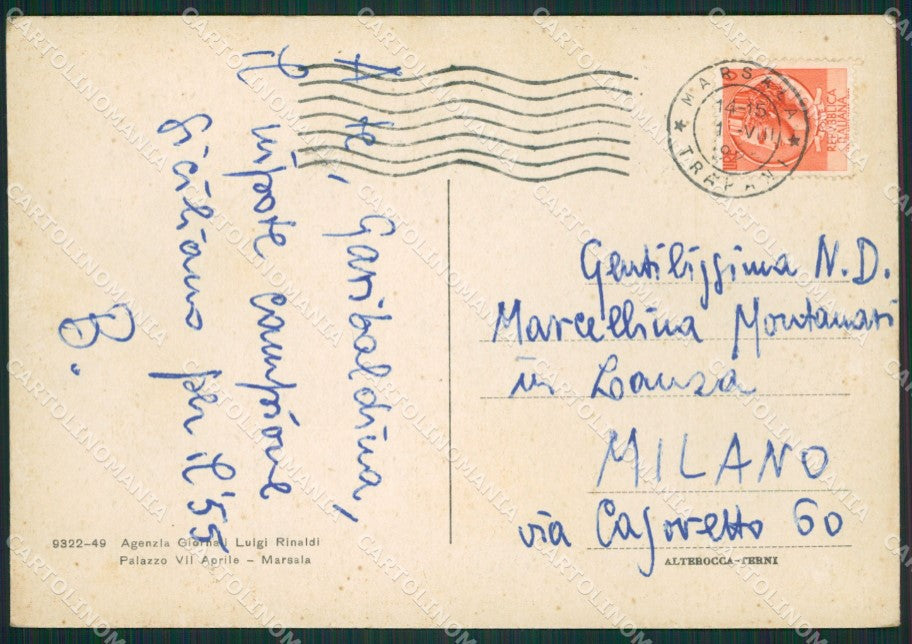 A te, Garibaldina,
il nipote campione
siciliano per il '55
B.
MARSALA
14-15
TRAPANI
REPVBBLICA
ITALIANA
LIRE
Gentilissima N.D.
Marcellina Montanari
in Lanza
MILANO
via Casoretto 60
9322-49 Agenzia Giornali Luigi Rinaldi
Palazzo VII Aprile - Marsala
ALTEROCCA-TERNI
CARTOLINOMANIA